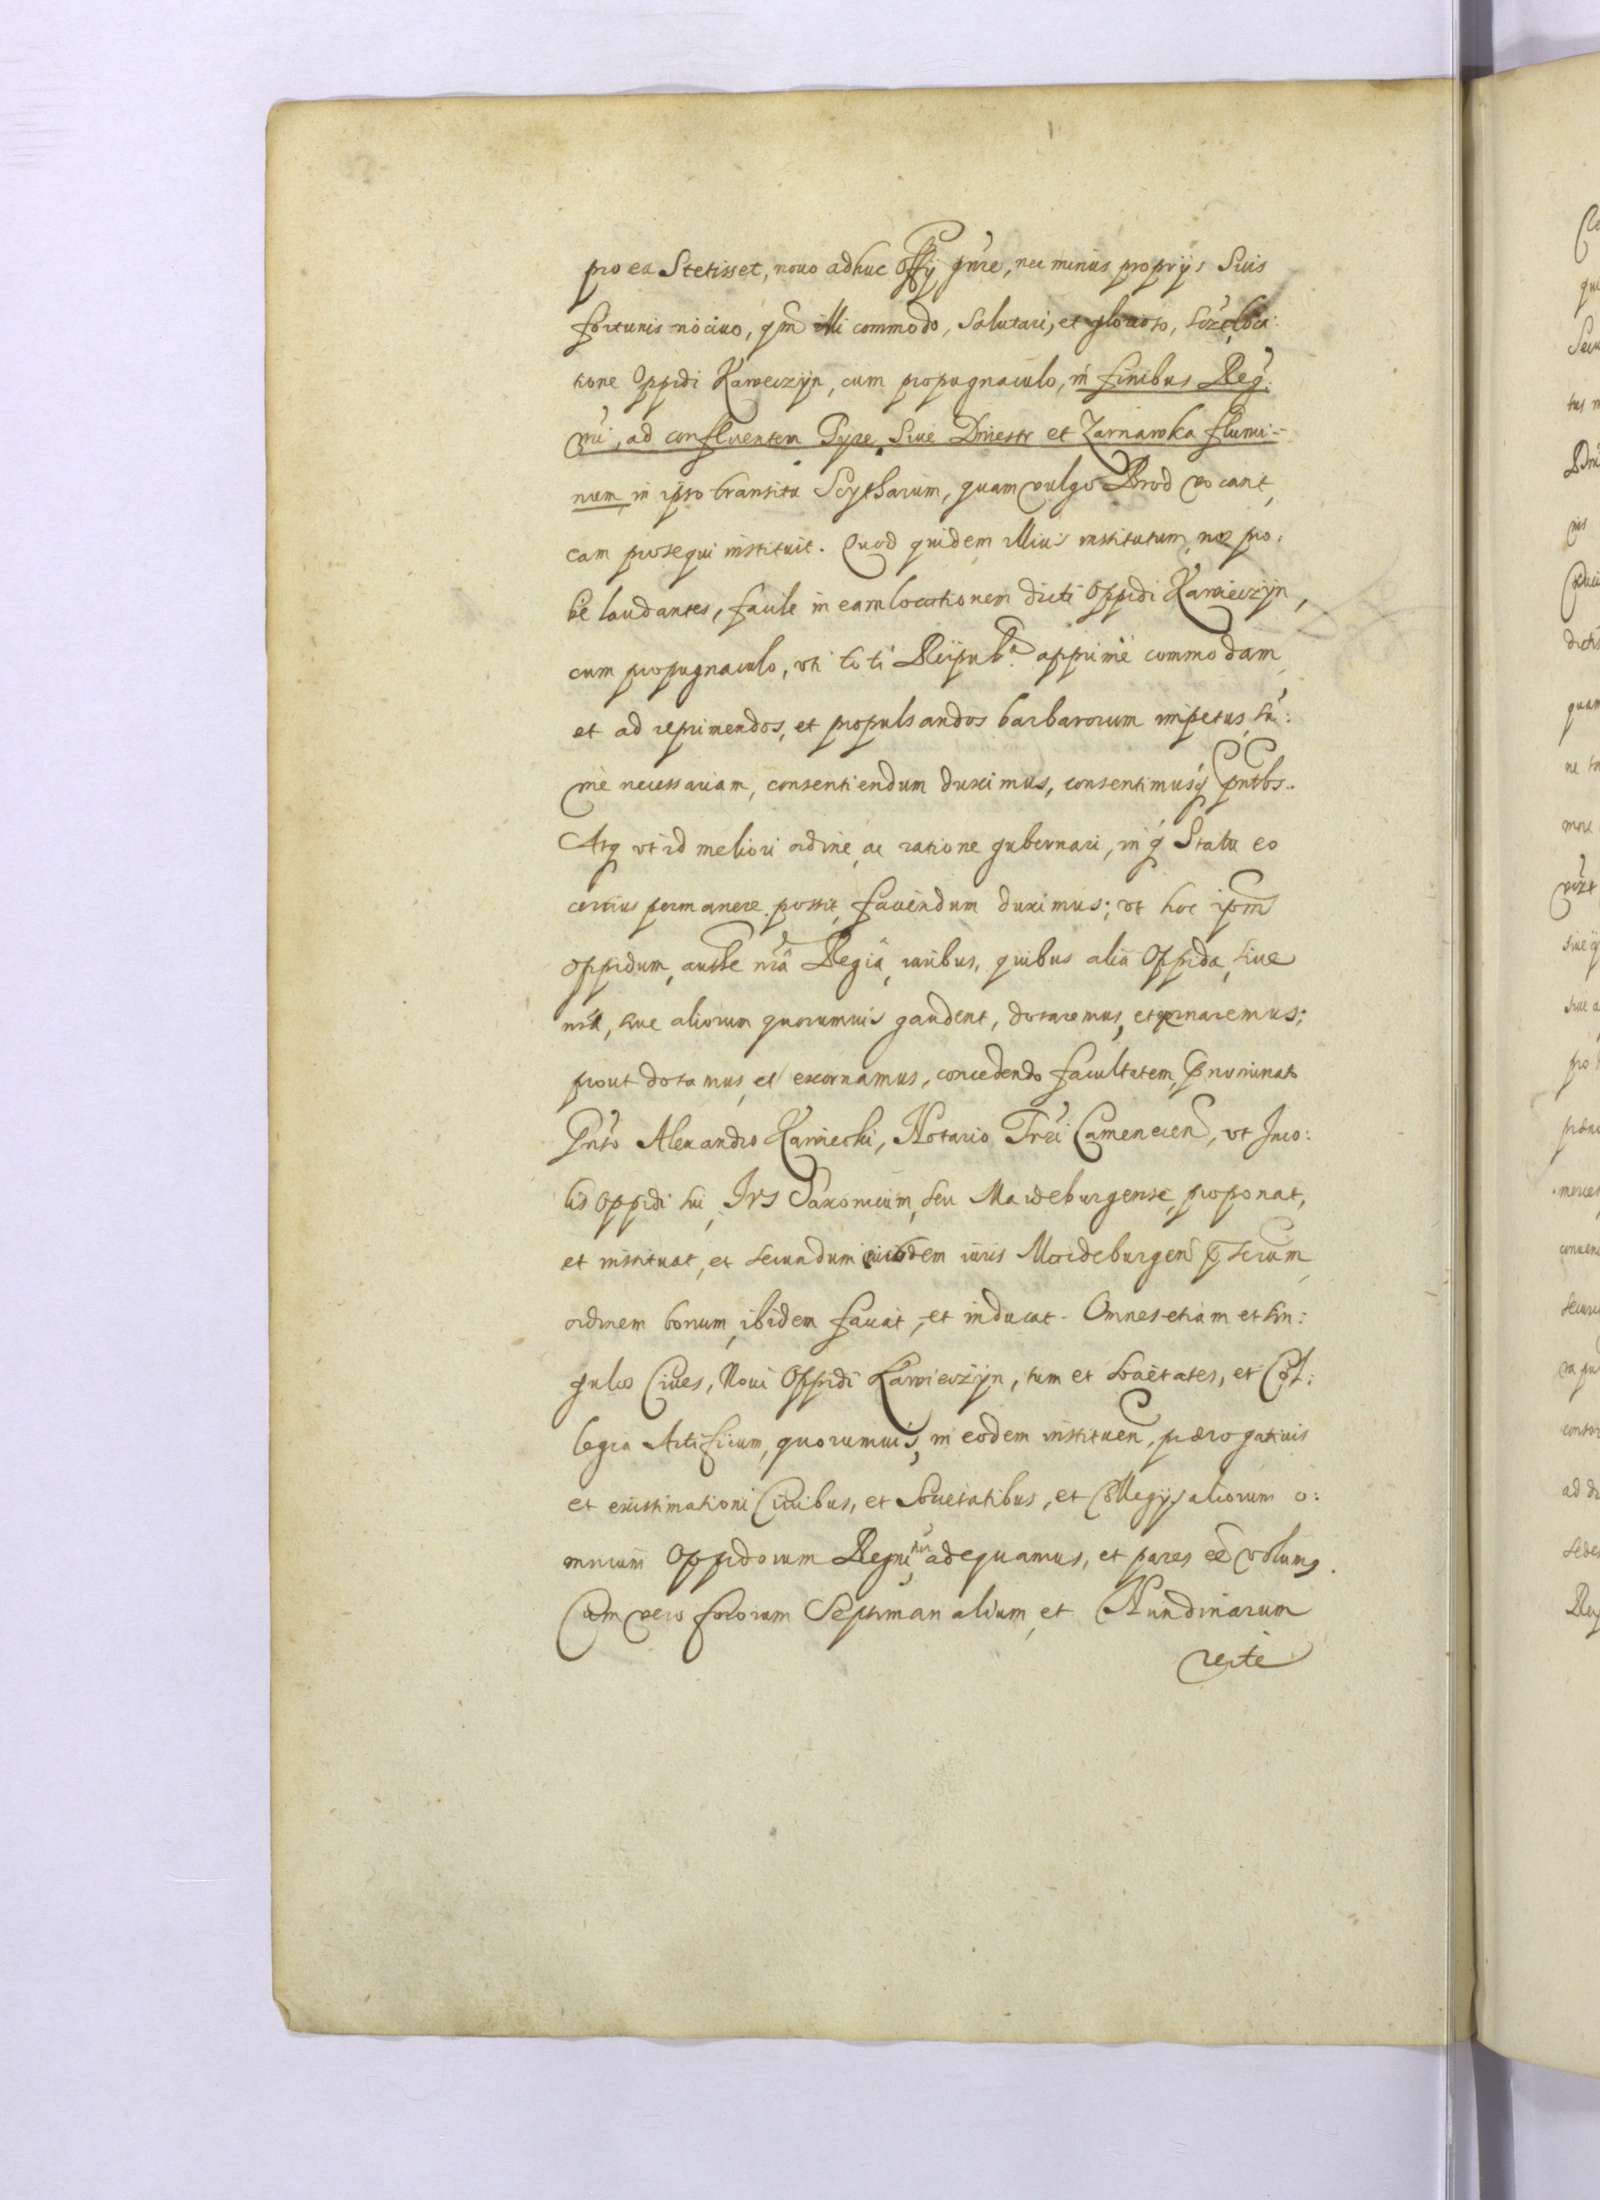 pro ea Stetisset, nouo adhuc Offij gn̄re, nec minus proprijs Suis
fortunis nociuo, qm̄ illi commodo, Salutari, et glorioso, loca:
tione Oppidi Kaweczyn, cum propugnaculo, in finibus Reg:
ni, ad confluentem Tyrae Siue Dniestr et Zarnawka flumi-
num, in ipso transitu Scytharum, quam vulgo Brod vocant,
eam prosequi instituit. Quod quidem illius institutum, nos pro:
bè laudantes, facile in eam locationem dicti Oppidi Kawieczyn,
cum propugnaculo, vti toti Reipubᵃ. apprimè commodam,
et ad reprimendos, et propulsandos barbarorum impetus, su:
mè necessariam, consentiendum duximus, consentimusq́ pn̄tbs.
Atq vt id meliori ordine, ac ratione gubernari, inq́ Statu eo
certius permanere possit, fauendum duximus; vt hoc ipsm̄
oppidum, authe nr̄a Regia, iuribus, quibus alia Oppida, siue
nr̄a, siue aliorum quorumuis gaudent, dotaremus, et exornaremus;
prout dotamus, et exornamus, concedendo facultatem, prenominato
Gn̄so Alexandro Kawiecki, Notario Trr̄i Camenecen, vt Inco:
lis Oppidi sui, Ius Saxonicum, seu Maideburgense, proponat,
et instituat, et secundum eiusdem iuris Maideburgen p̄scrum,
ordinem bonum, ibidem faciat, et inducat. Omnes etiam et sin:
gulos Ciues, Noui Oppidi Kawieczyn, tum et Societates, et Col:
legia Artificum, quorumuis, in eodem instituen, praerogatiuis
et existimationi Ciuibus, et Societatibus, et Collegijs aliorum o:
mnium Oppidorum Regni nr̄i adequamus, et pares eē volumus.
Cum vero fororum Septimanalium, et Nundinarum
recte